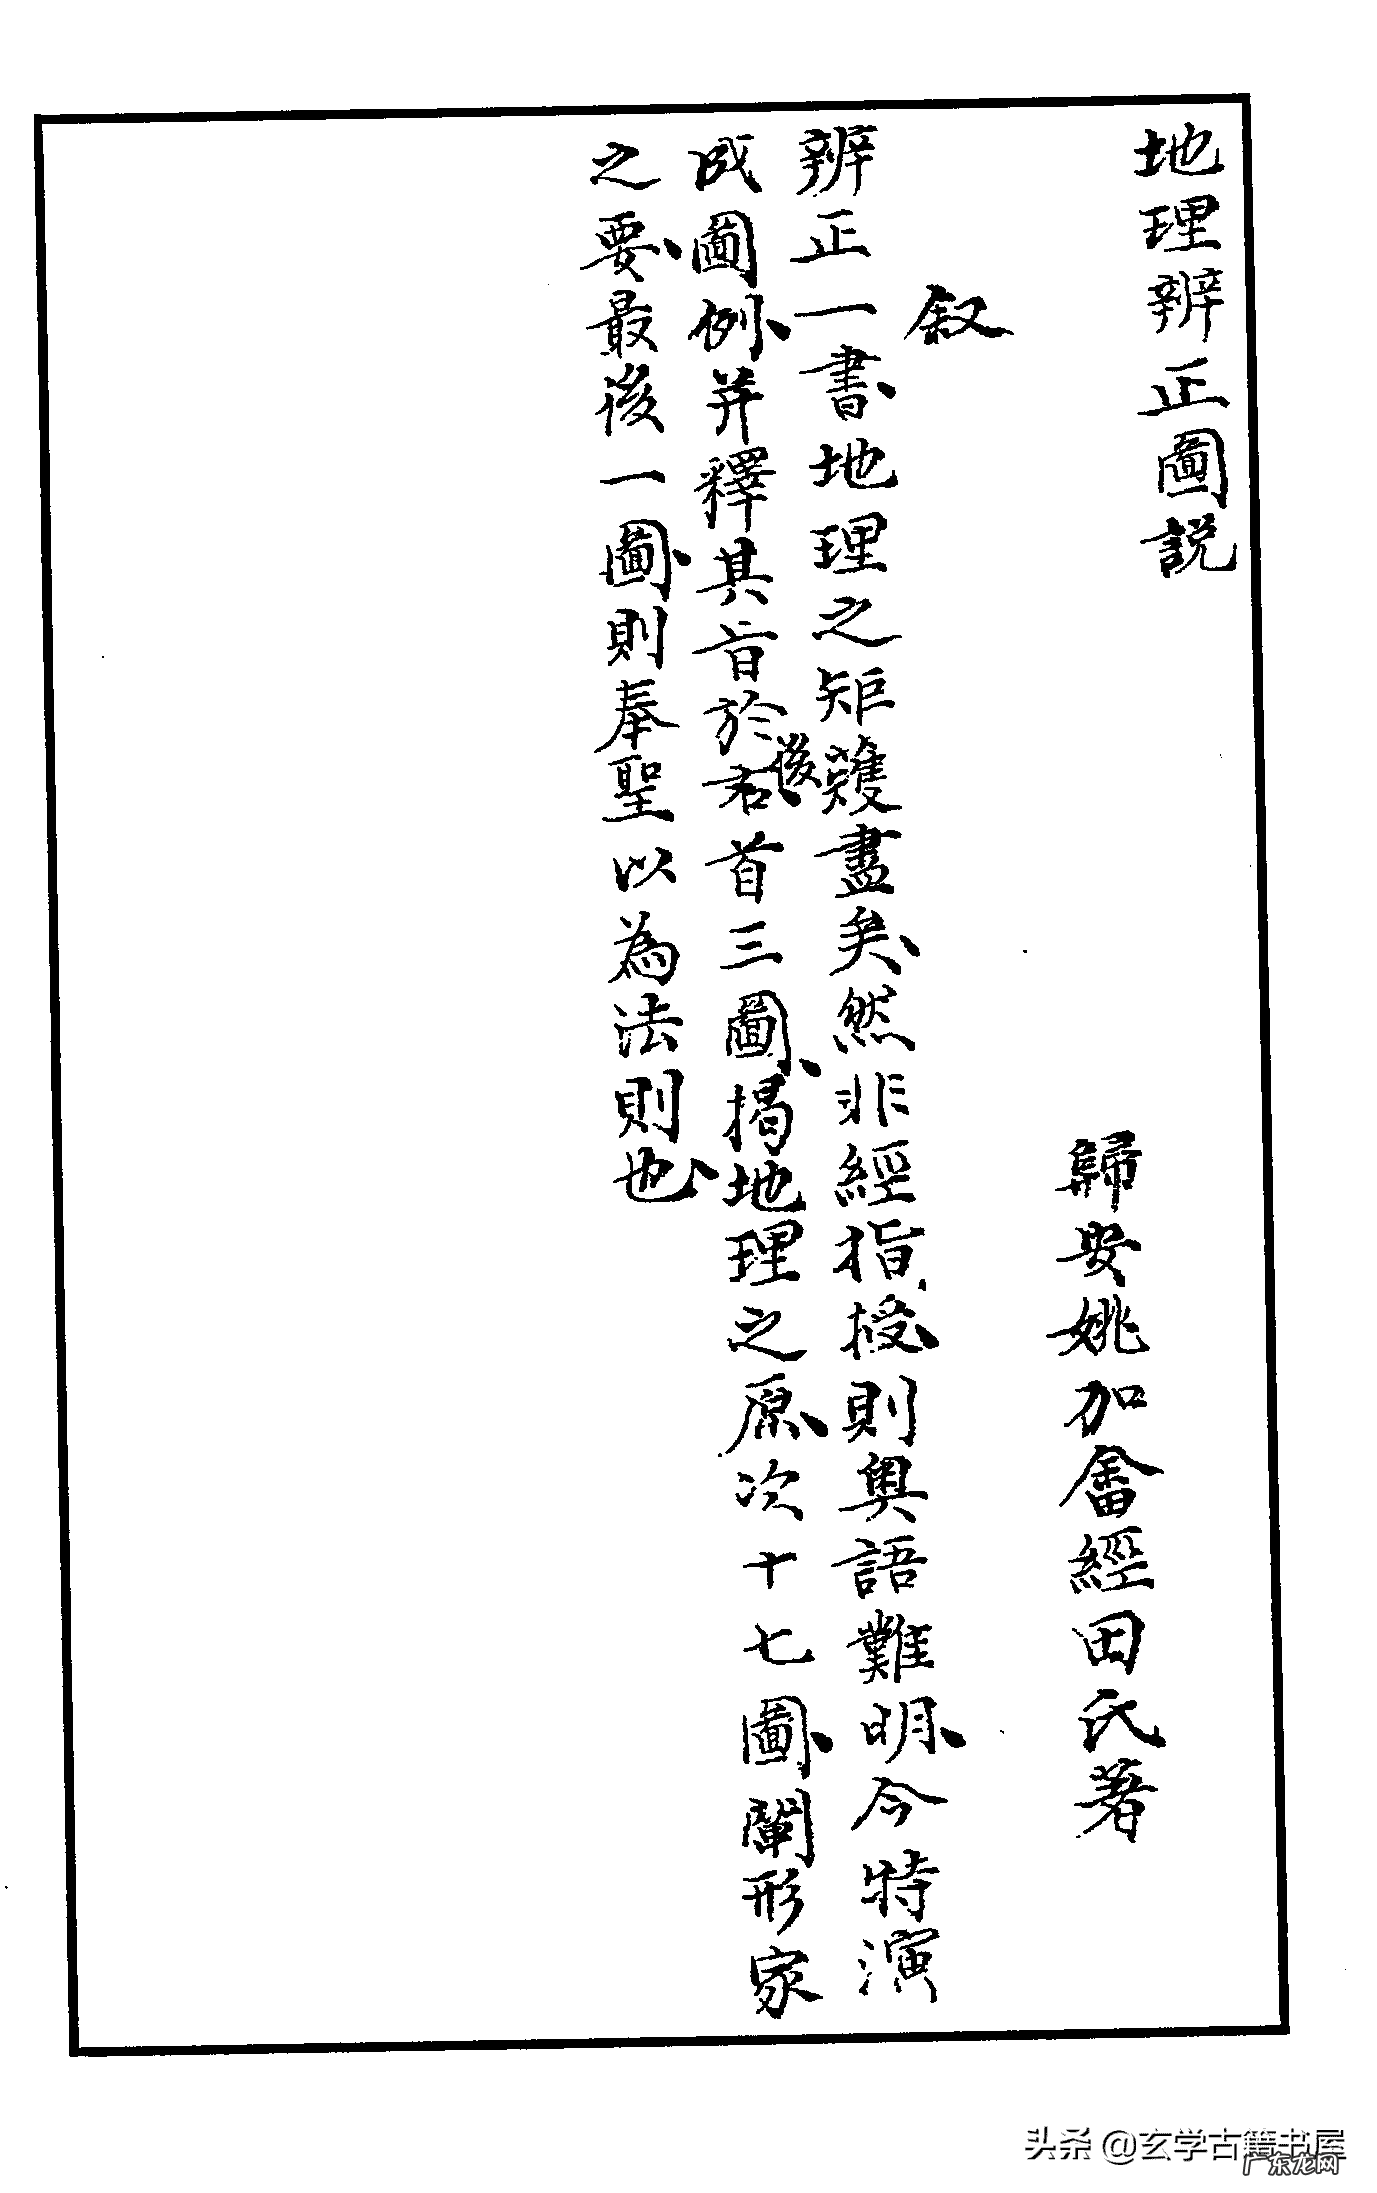 地理辨正圖説
歸安姚加畬經田氏著
叙
辨正一書地理之矩矱盡矣然非經指授則奥語難明今特演
成圖例并釋其旨於右後首三圖揭地理之原次十七圖闡形家
之要最後一圖則奉聖以為法則也
头条 @玄学古籍书屋
广东龙网